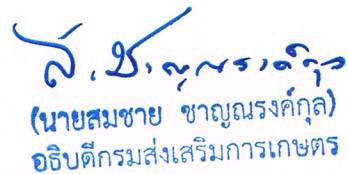 ส. ชาญณรงค์กุล
(นายสมชาย ชาญณรงค์กุล)
อธิบดีกรมส่งเสริมการเกษตร